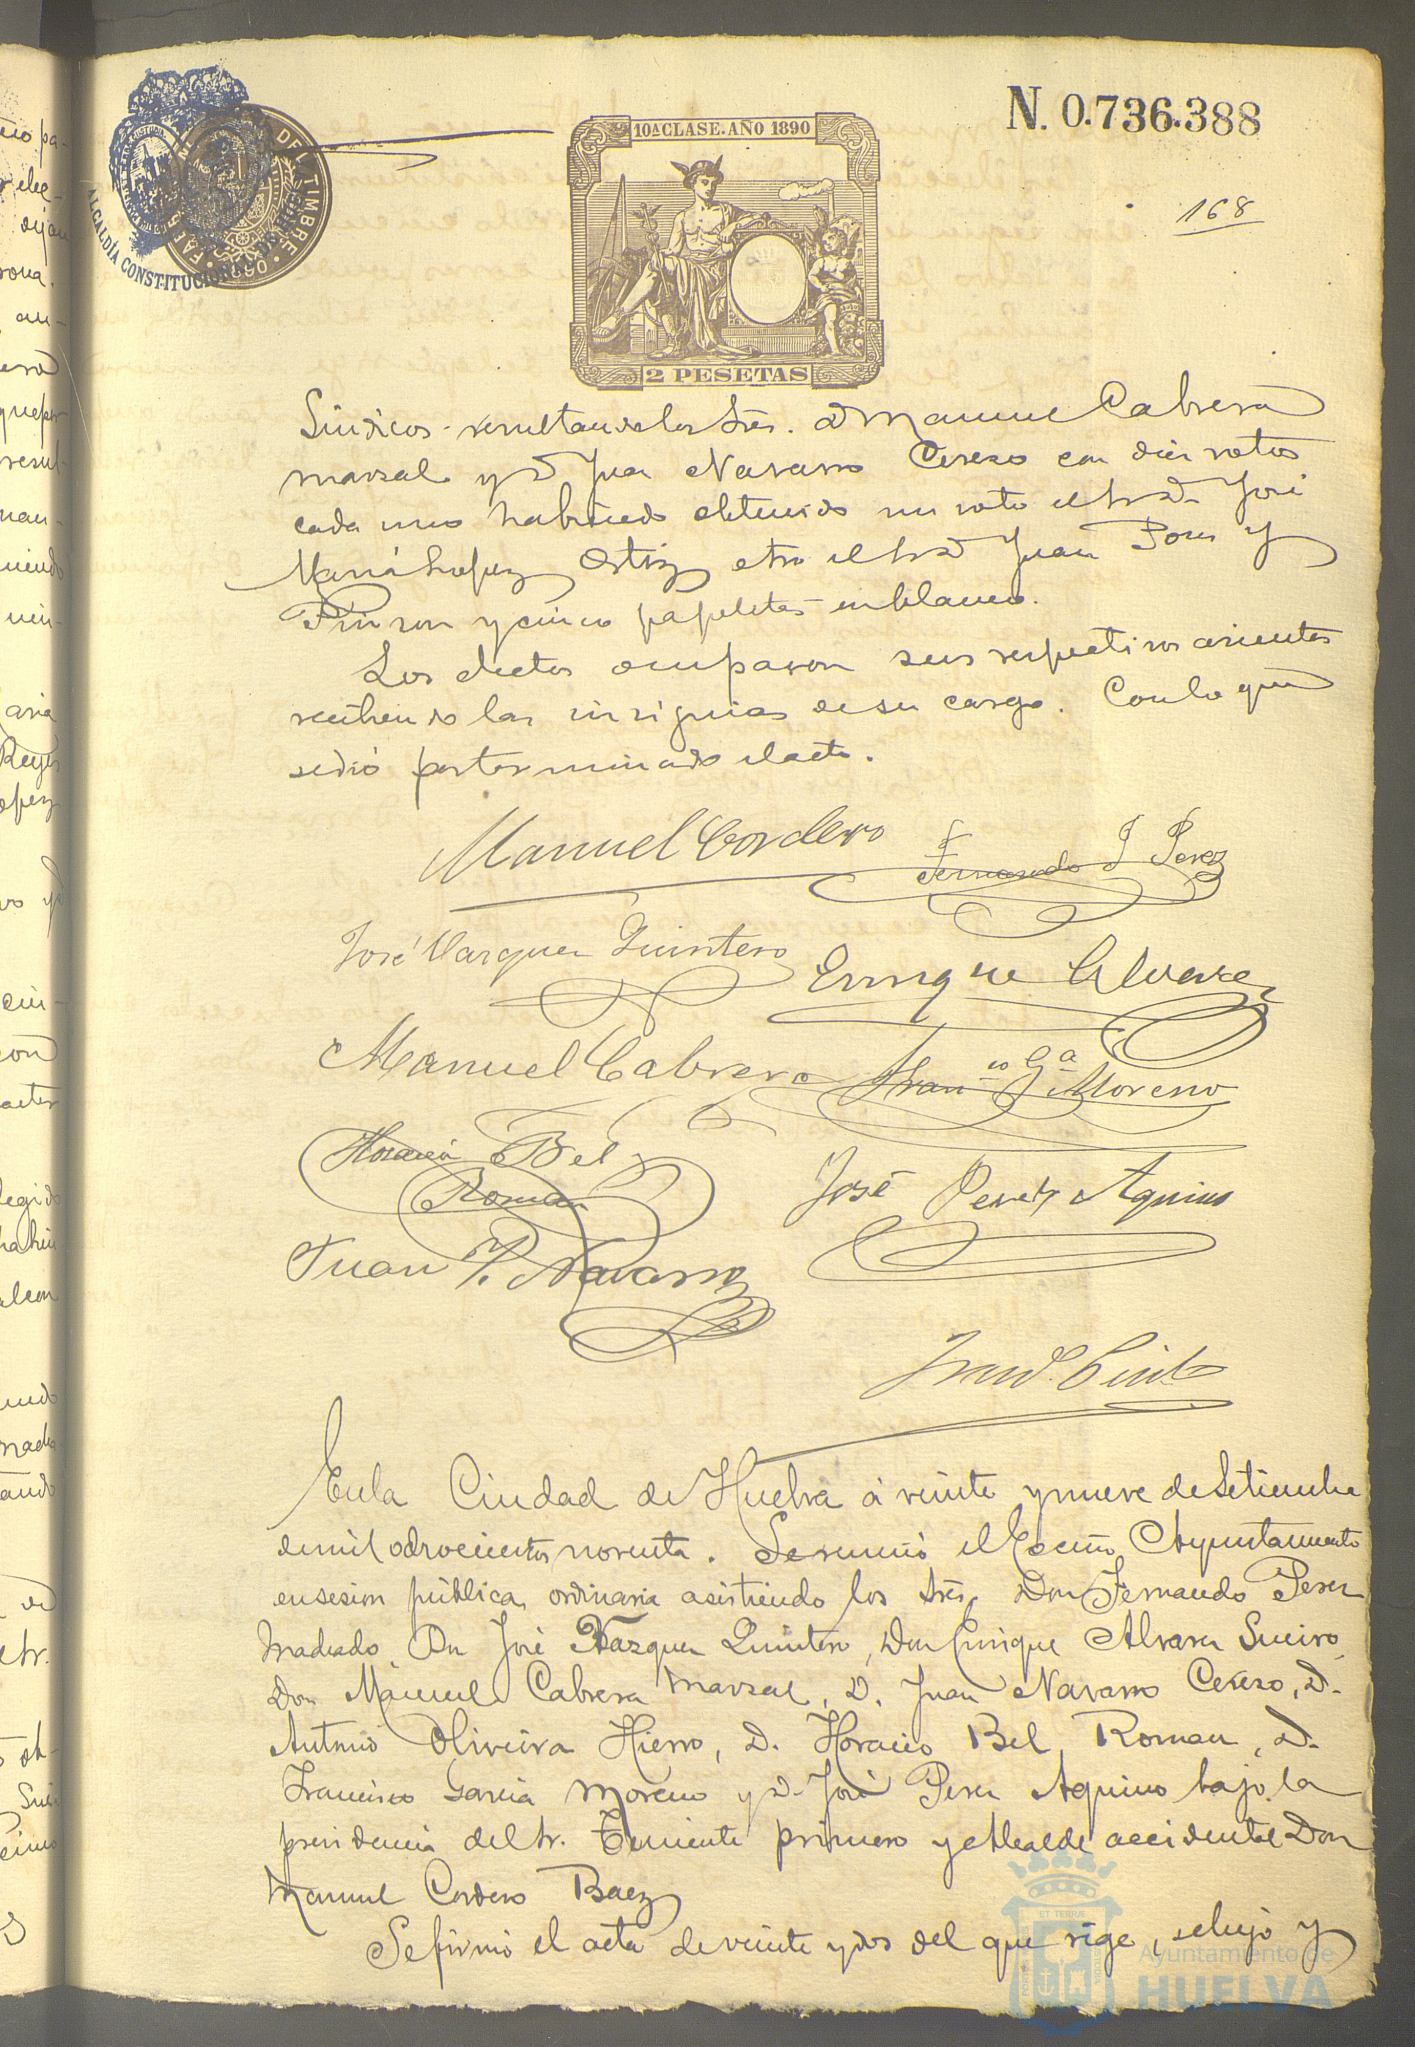 N. 0.736.388
10ª CLASE. AÑO 1890
168
DEL TIMBRE
ALCALDÍA CONSTITUCIONAL
2 PESETAS
Síndicos resultando los Sres. D Manuel Cabrera
Marsal y D Juan Navarro Cerezo con diez votos
cada uno habiendo obtenido un voto el Sr D. José
María Lopez Ortiz otro el Sr D Juan Pons y
Pinzon y cinco papeletas en blanco.
Los electos ocuparon sus respectivos asientos
recibiendo las insignias de su cargo. Con lo que
se dió por terminado el acto.
Manuel Cordero
Fernando P Perez
José Vazquez Quintero
Enrique Alvarez
Manuel Cabrera
Franco Ga Moreno
Horacio Bel
Roman
José Perez Aquino
Juan P. Navarro
En la Ciudad de Huelva á veinte y nueve de Setiembre
de mil ochocientos noventa. Se reunió el Excmo Ayuntamiento
en sesion pública ordinaria asistiendo los Sres Don Fernando Perez
Machado, Dn José Vazquez Quintero, Don Enrique Alvarez Sueiro,
Don Manuel Cabrera Marsal, D. Juan Navarro Cerezo, D.
Antonio Oliveira Hierro, D. Horacio Bel Roman, D.
Francisco Garcia Moreno y D. José Perez Aquino bajo la
presidencia del Sr. Teniente primero y Alcalde accidental Don
Manuel Cordero Baez
Se firmó el acta de veinte y dos del que rige, se leyó y
Ayuntamiento de
HUELVA